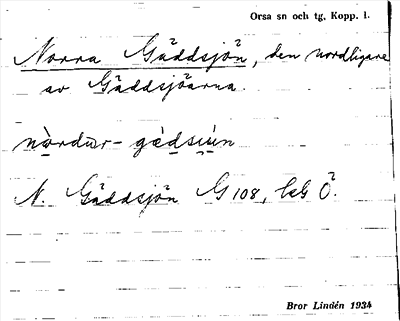 Orsa sn och tg, Kopp. l.
Norra Gäddsjön, den nordligare
av Gäddsjöarna.
nòrdur-gèdsiún
N. Gäddsjön G 108, lbG Ö.
Bror Lindén 1934